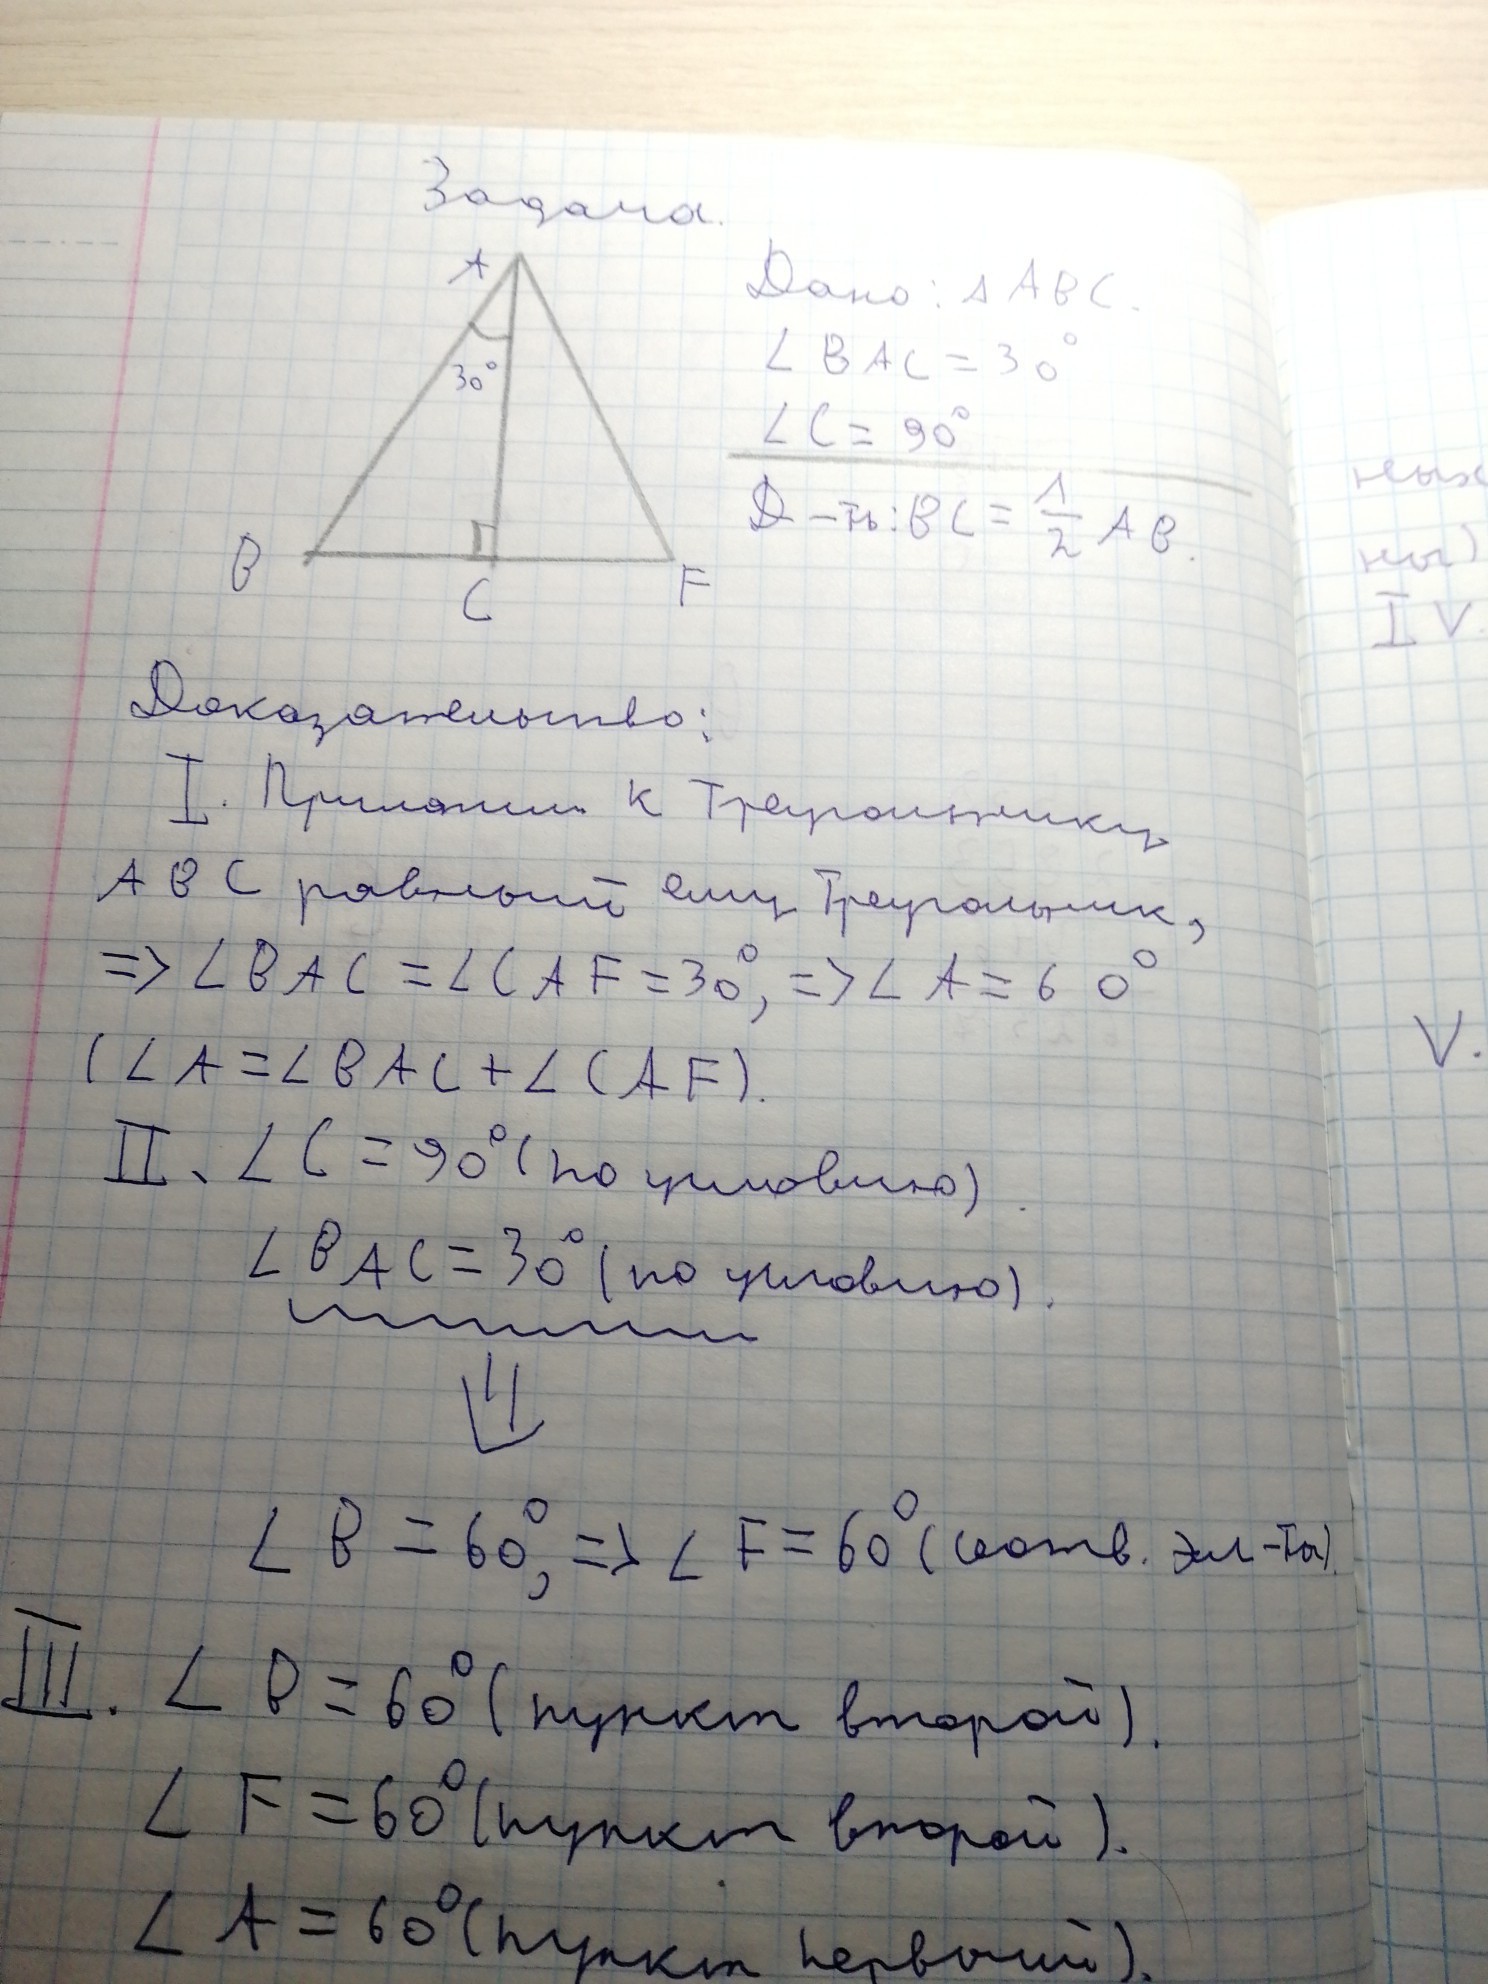 Задача.
A
30°
B
C
F
Дано: △ABC.
∠BAC = 30°
∠C = 90°
Д-ть: BC = 1/2 AB.
Доказательство:
I. Приложим к треугольнику
ABC равный ему треугольник,
=> ∠BAC = ∠CAF = 30°, => ∠A = 60°
(∠A = ∠BAC + ∠CAF).
II. ∠C = 90° (по условию).
∠BAC = 30° (по условию).
∠B = 60°, => ∠F = 60° (соотв. эл-ты).
III. ∠B = 60° (пункт второй).
∠F = 60° (пункт второй).
∠A = 60° (пункт первый).
ны)
IV.
V.